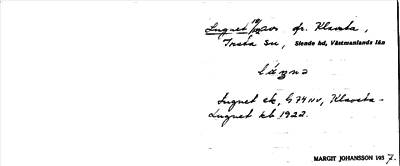 Lugnet 10/10 NV fr. Klavsta,
Irsta Sn, Siende hd, Västmanlands län
Lugnet ek, G 74 NV, Klavsta-
Lugnet kb 1922.
MARGIT JOHANSSON 1937.